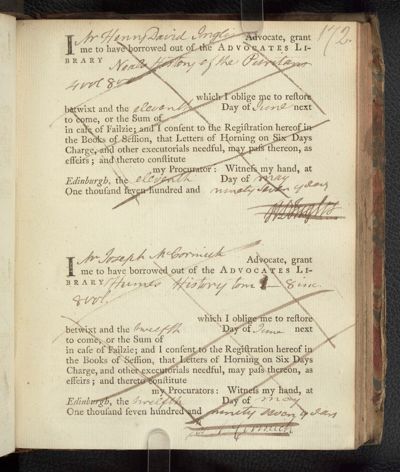 172
I Mr Henry David Inglis Advocate, grant
me to have borrowed out of the ADVOCATES LI-
BRARY Neals History of the Puritans
4 vol 8vo
which I oblige me to restore
betwixt and the eleventh Day of June next
to come, or the Sum of
in case of Failzie; and I consent to the Registration hereof in
the Books of Session, that Letters of Horning on Six Days
Charge, and other executorials needful, may pass thereon, as
effeirs; and thereto constitute
my Procurator: Witness my hand, at
Edinburgh, the eleventh Day of may
One thousand seven hundred and ninety seven years
HD Inglis
I Mr Joseph McCormick Advocate, grant
me to have borrowed out of the ADVOCATES LI-
BRARY Humes History tom 1 8
8vol.
which I oblige me to restore
betwixt and the twelfth Day of June next
to come, or the Sum of
in case of Failzie; and I consent to the Registration hereof in
the Books of Session, that Letters of Horning on Six Days
Charge, and other executorials needful, may pass thereon, as
effeirs; and thereto constitute
my Procurators: Witness my hand, at
Edinburgh, the twelfth Day of may
One thousand seven hundred and ninety seven years
McCormick